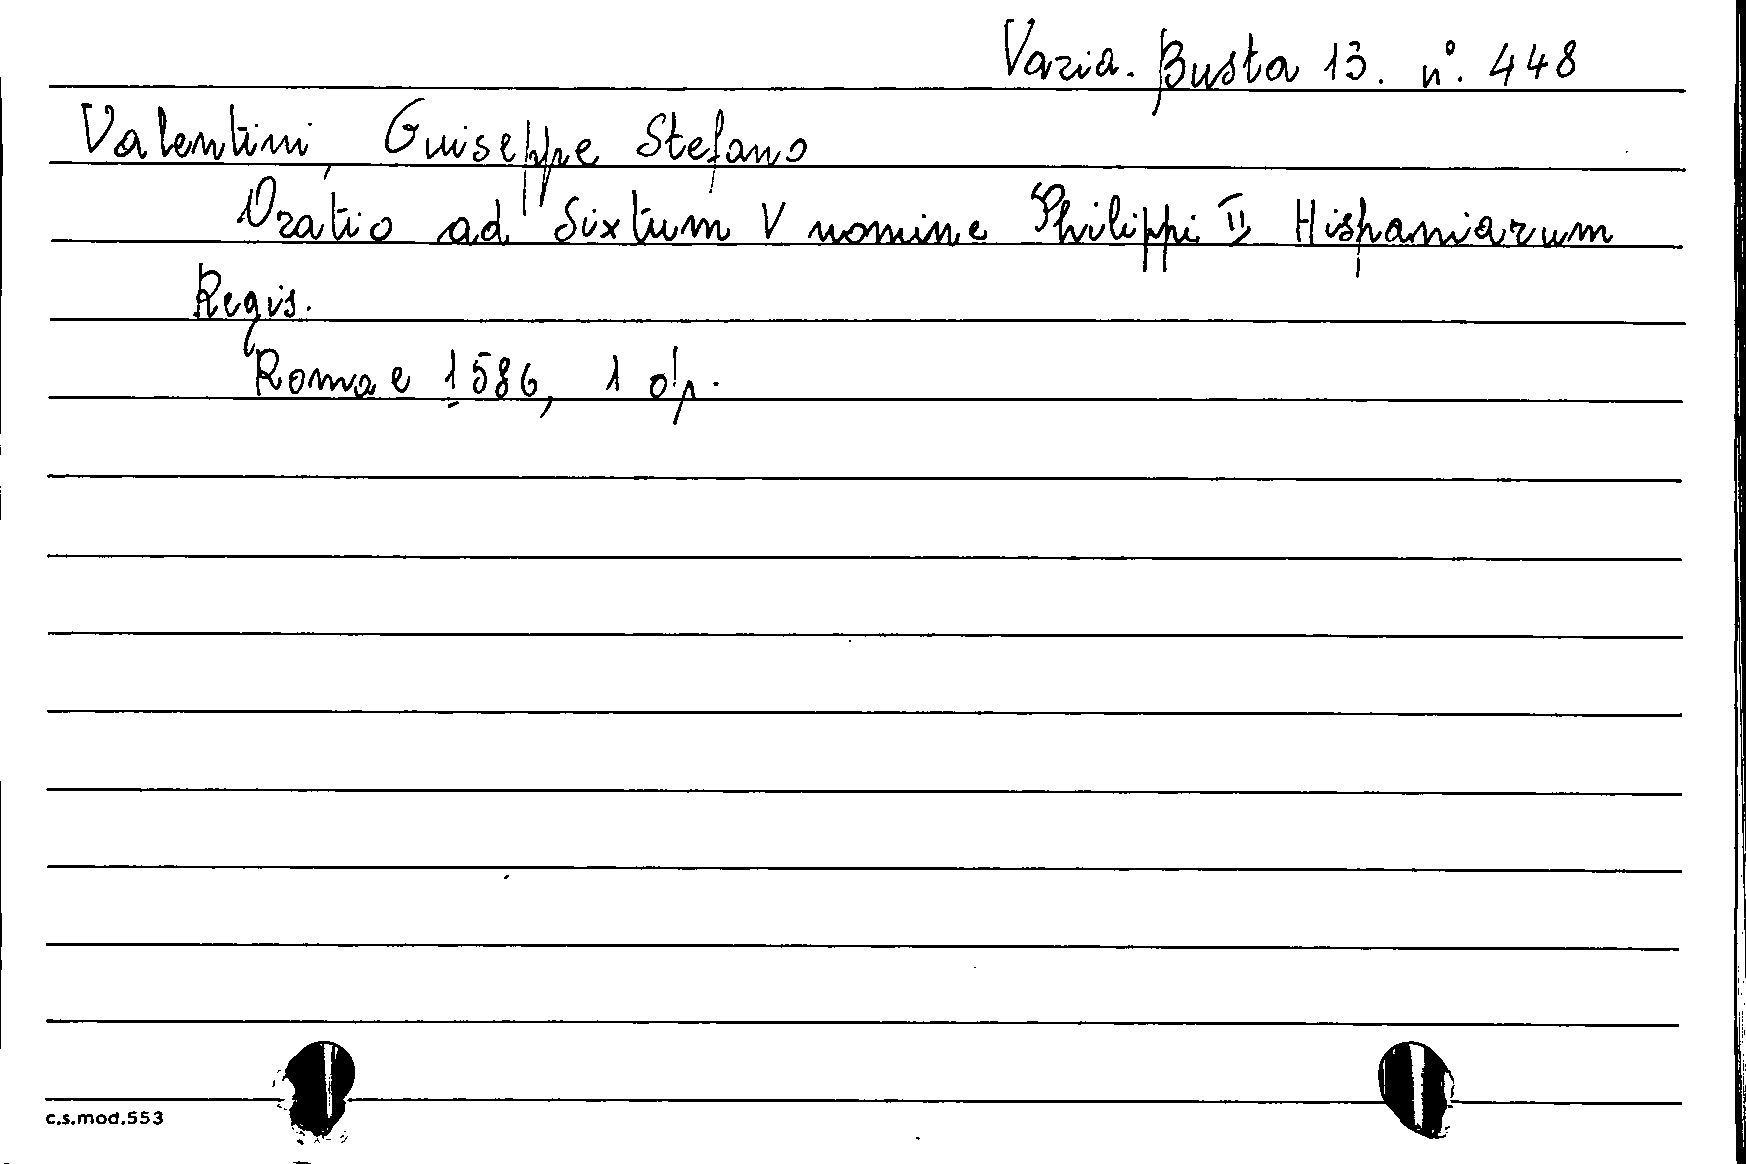 Varia. Busta 13. n°. 448
Valentini, Guiseppe Stefano
Oratio ad Sixtum V nomine Philippi II Hispaniarum
Regis.
Romae 1586, 1 op.
c.s.mod.553